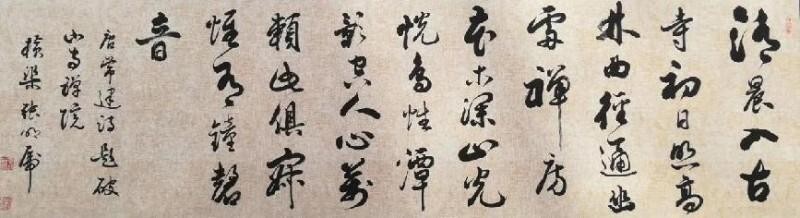 清晨入古
寺初日照高
林曲徑通幽
處禪房
花木深山光
悅鳥性潭
影空人心萬
籟此俱寂
惟聞鐘磬
音
唐常建詩題破
山寺禪院
橫渠張